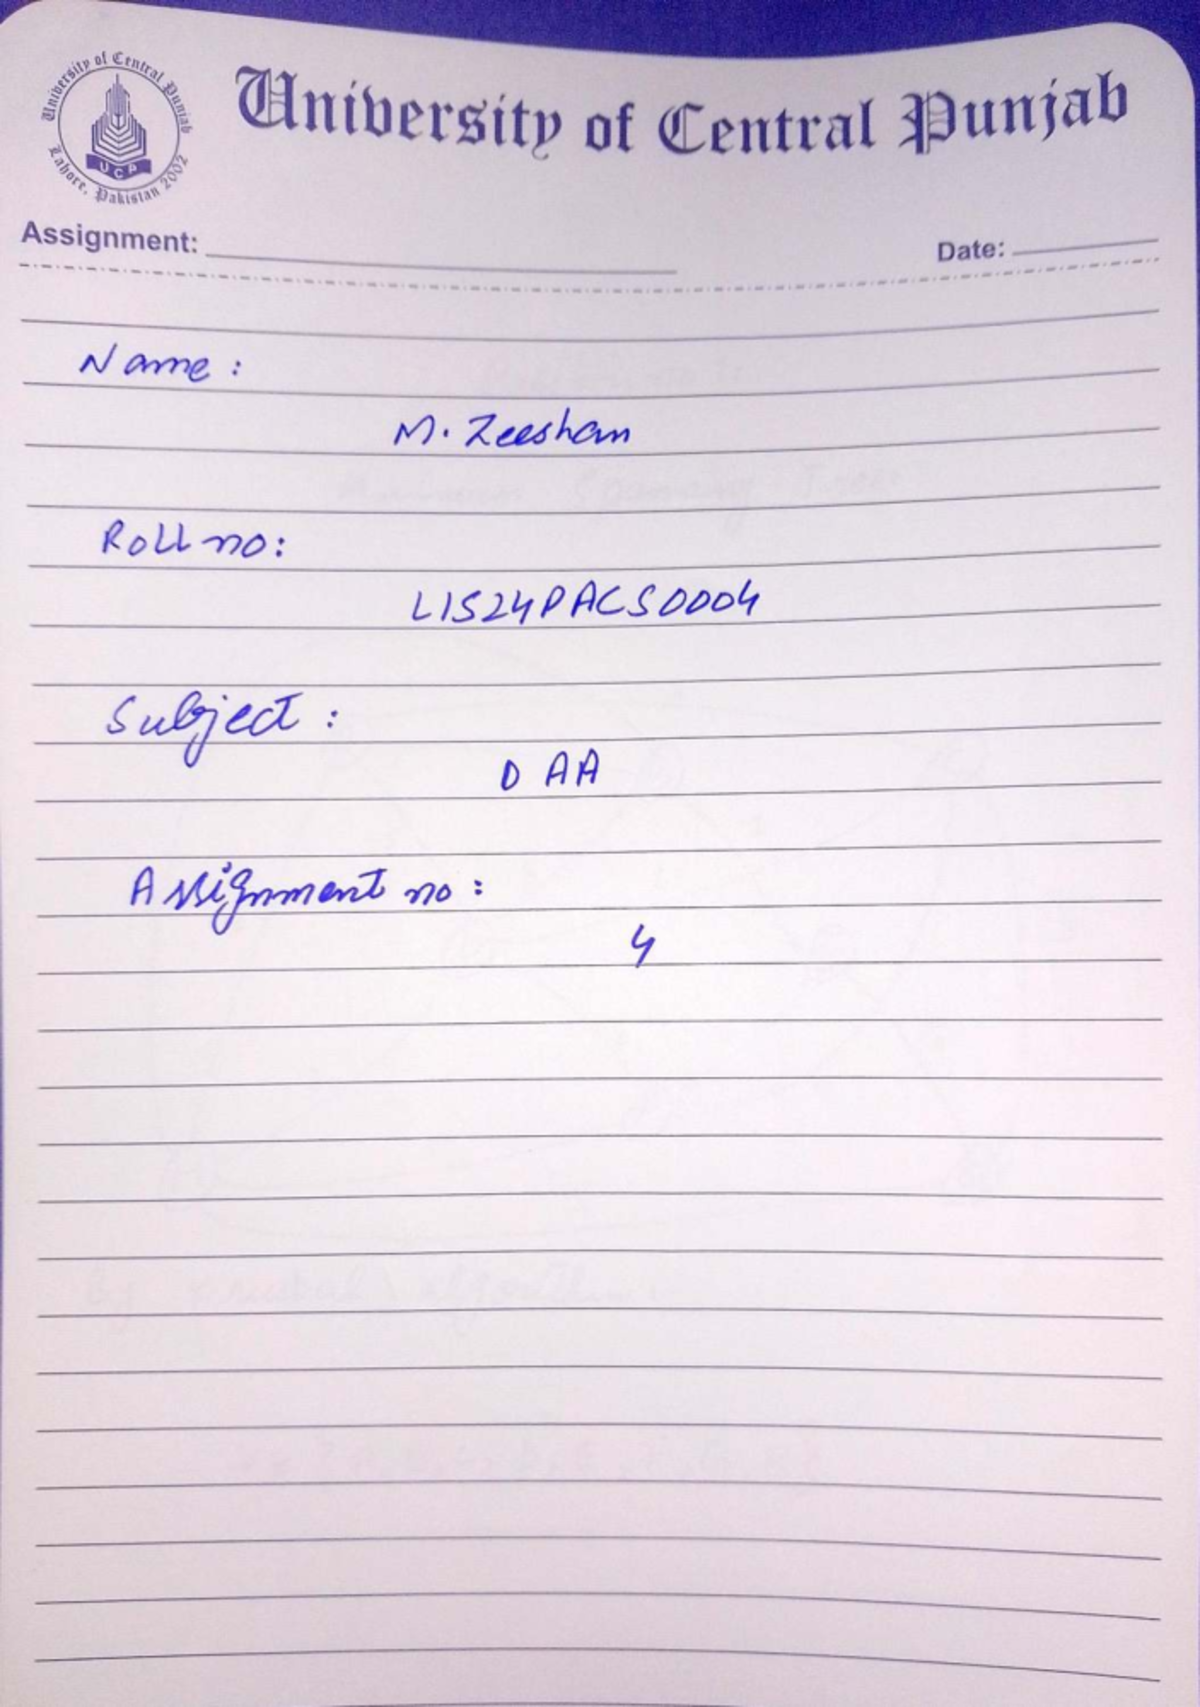 University of Central Punjab
University of Central Punjab
Lahore, Pakistan 2002
UCP
Assignment:
Date:
Name :
M. Zeeshan
Roll no:
L1S24PACS0004
Subject :
DAA
Assignment no :
4